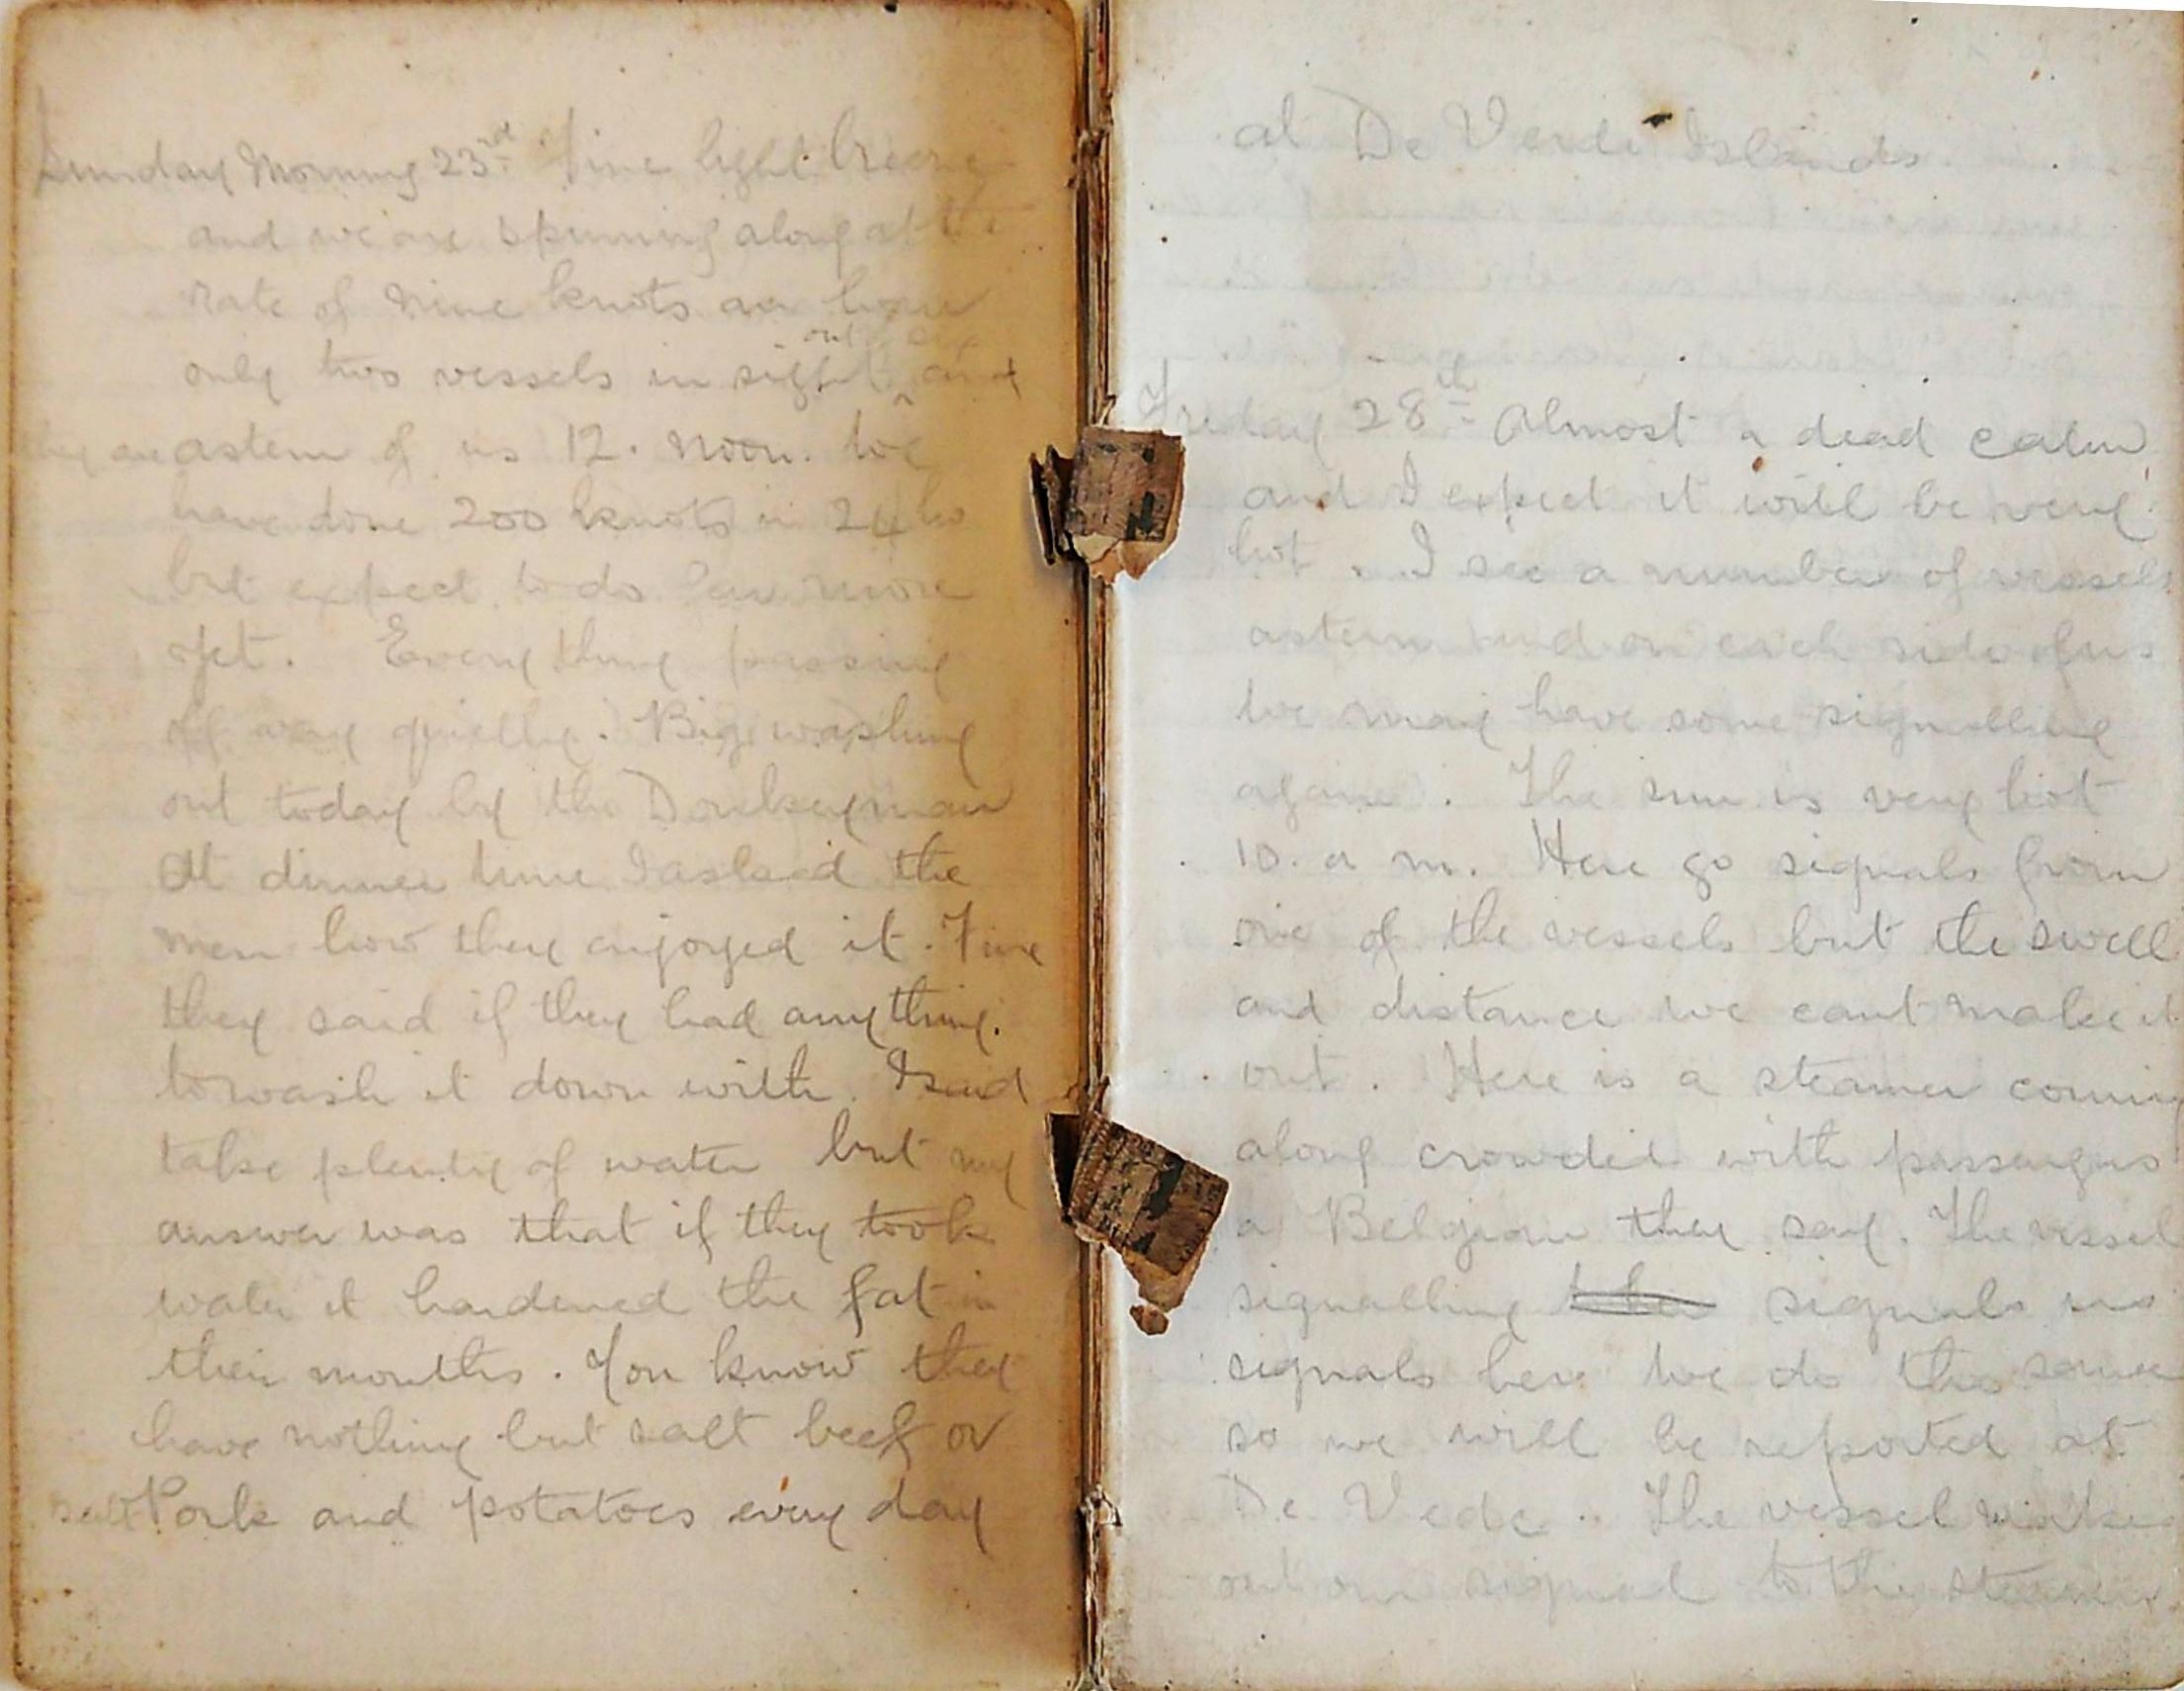 Sunday Morning 23rd Fine light breeze
and we are spinning along at the
rate of nine knots an hour
out
only two vessels in sight and
they are astern of us 12. noon. We
have done 200 knots in 24 ho
but expect to do more
yet. Every thing passing
off very quietly. Big washing
out today by the Donkeyman
At dinner time I asked the
men how they enjoyed it. Fine
they said if they had anything.
to wash it down with. I said
take plenty of water but my
answer was that if they took
water it hardened the fat in
their mouths. You know they
have nothing but salt beef or
salt Pork and potatoes every day
at De Verde Islands.
Friday 28th Almost a dead calm
and I expect it will be very
hot. I see a number of vessels
astern and on each side of us
We may have some signalling
again. The sun is very hot
10. a m. Here go signals from
one of the vessels but the swell
and distance we cant make it
out. Here is a steamer coming
along crowded with passengers
a Belgian they say. The vessel
signalling the signals us
signals her We do the same
so we will be reported at
De Vede.. The vessel
out our signal to the steamer